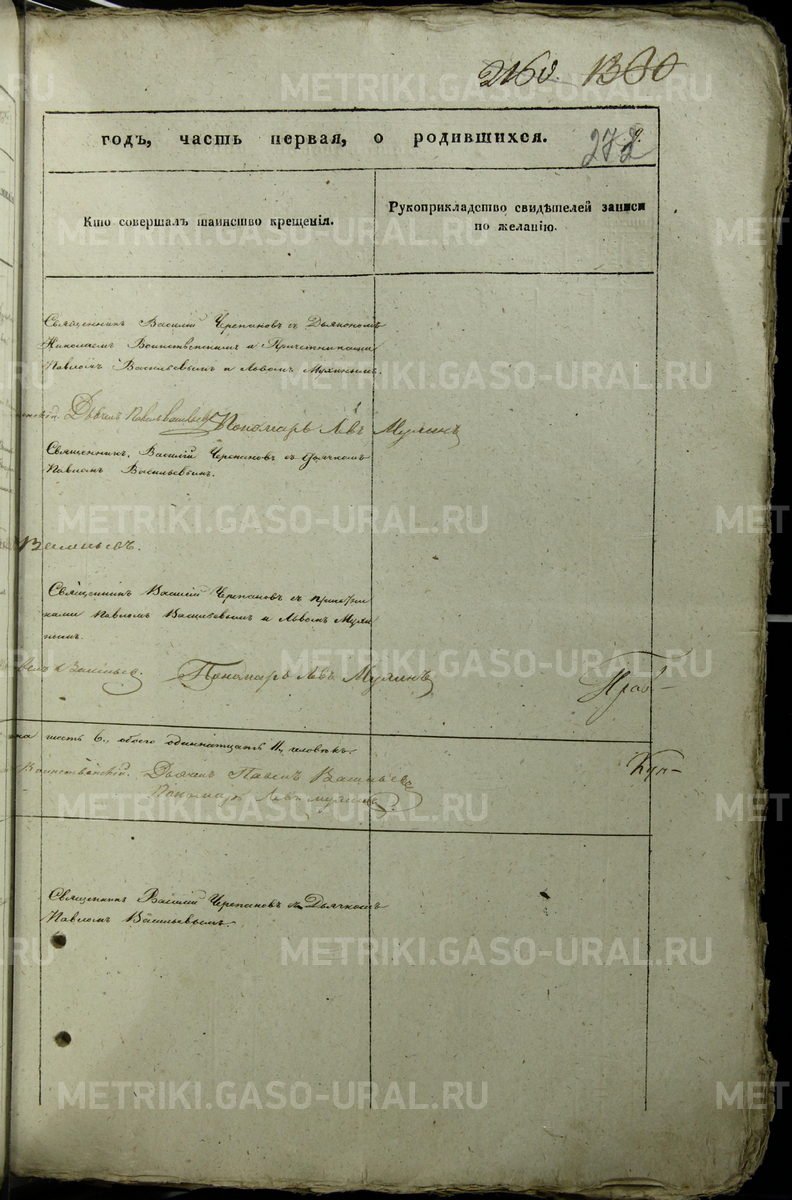 216 об. 1360
годъ, часть первая, о родившихся.
272
Кто совершалъ таинство крещенія.
Рукоприкладство свидѣтелей записи
по желанію.
Священникъ Василій Черепановъ съ Дьякономъ
Николаемъ Воинственскимъ и Причетниками
Павломъ Васильевымъ и Львомъ Мухинымъ.
Дьячекъ Павелъ Васильевъ Пономарь Левъ
Священникъ Василій Черепановъ съ Дьячкомъ
Павломъ Васильевымъ.
Васильевъ.
Священникъ Василій Черепановъ съ причетни
ками Павломъ Васильевымъ и Львомъ
нымъ.
Васильевъ. Пономарь Левъ
на шесть 6., обоего одиннатцать 11, человѣкъ.
Дьячекъ Павелъ Васильевъ
Пономарь Левъ
Священникъ Василій Черепановъ съ Дьячкомъ
Павломъ Васильевымъ.
METRIKI.GASO-URAL.RU